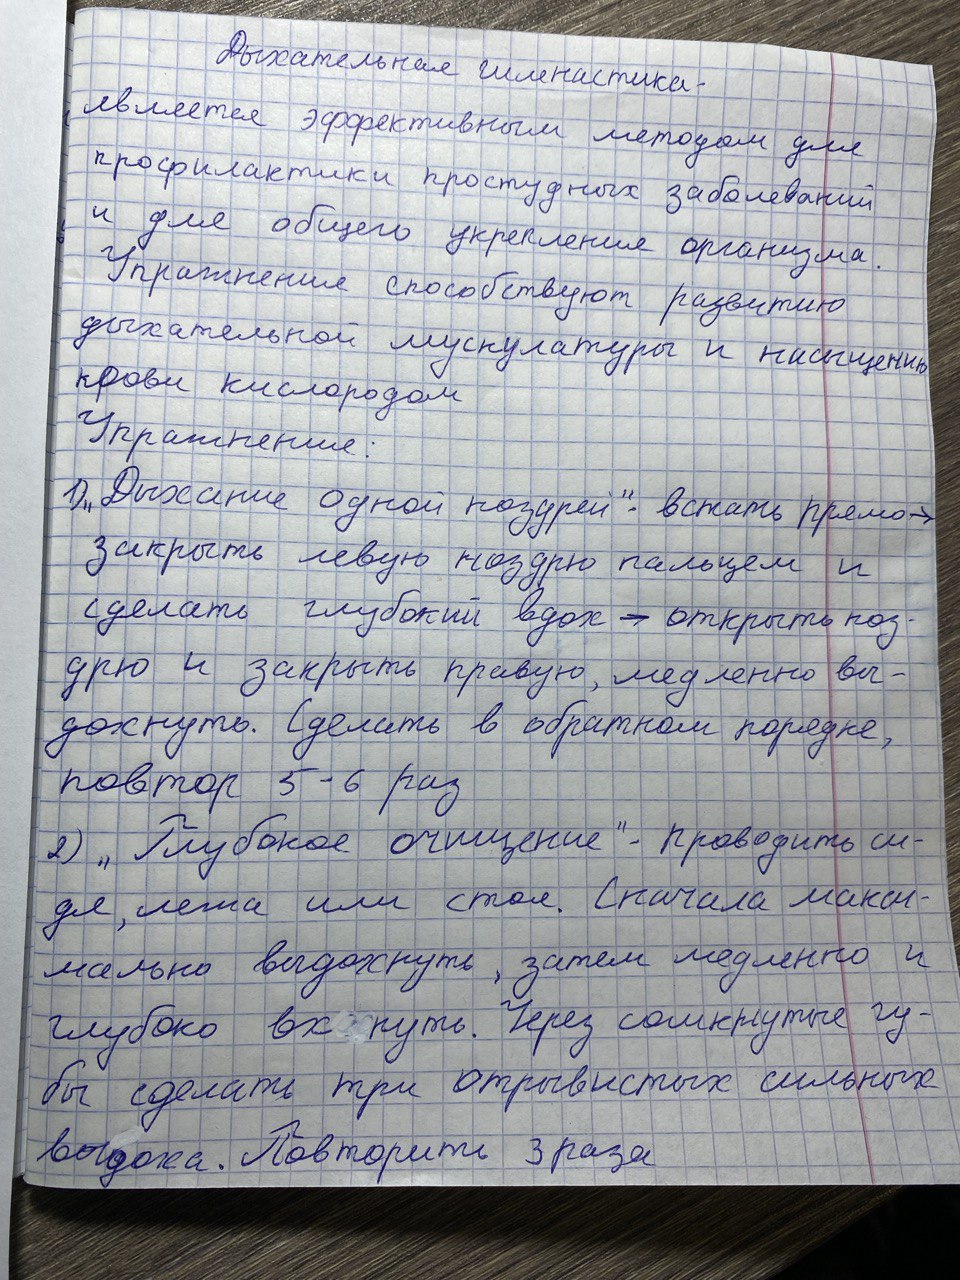 Дыхательная гимнастика -
является эффективным методом для
профилактики простудных заболеваний
и для общего укрепления организма.
Упражнения способствуют развитию
дыхательной мускулатуры и насыщению
крови кислородом
Упражнения:
1) „Дыхание одной ноздрей" - встать прямо →
закрыть левую ноздрю пальцем и
сделать глубокий вдох → открыть ноз-
дрю и закрыть правую, медленно вы-
дохнуть. Сделать в обратном порядке,
повтор 5-6 раз
2) „Глубокое очищение" - проводить си-
дя, лежа или стоя. Сначала макси-
мально выдохнуть, затем медленно и
глубоко вхнуть. Через сомкнутые гу-
бы сделать три отрывистых сильных
выдоха. Повторить 3 раза